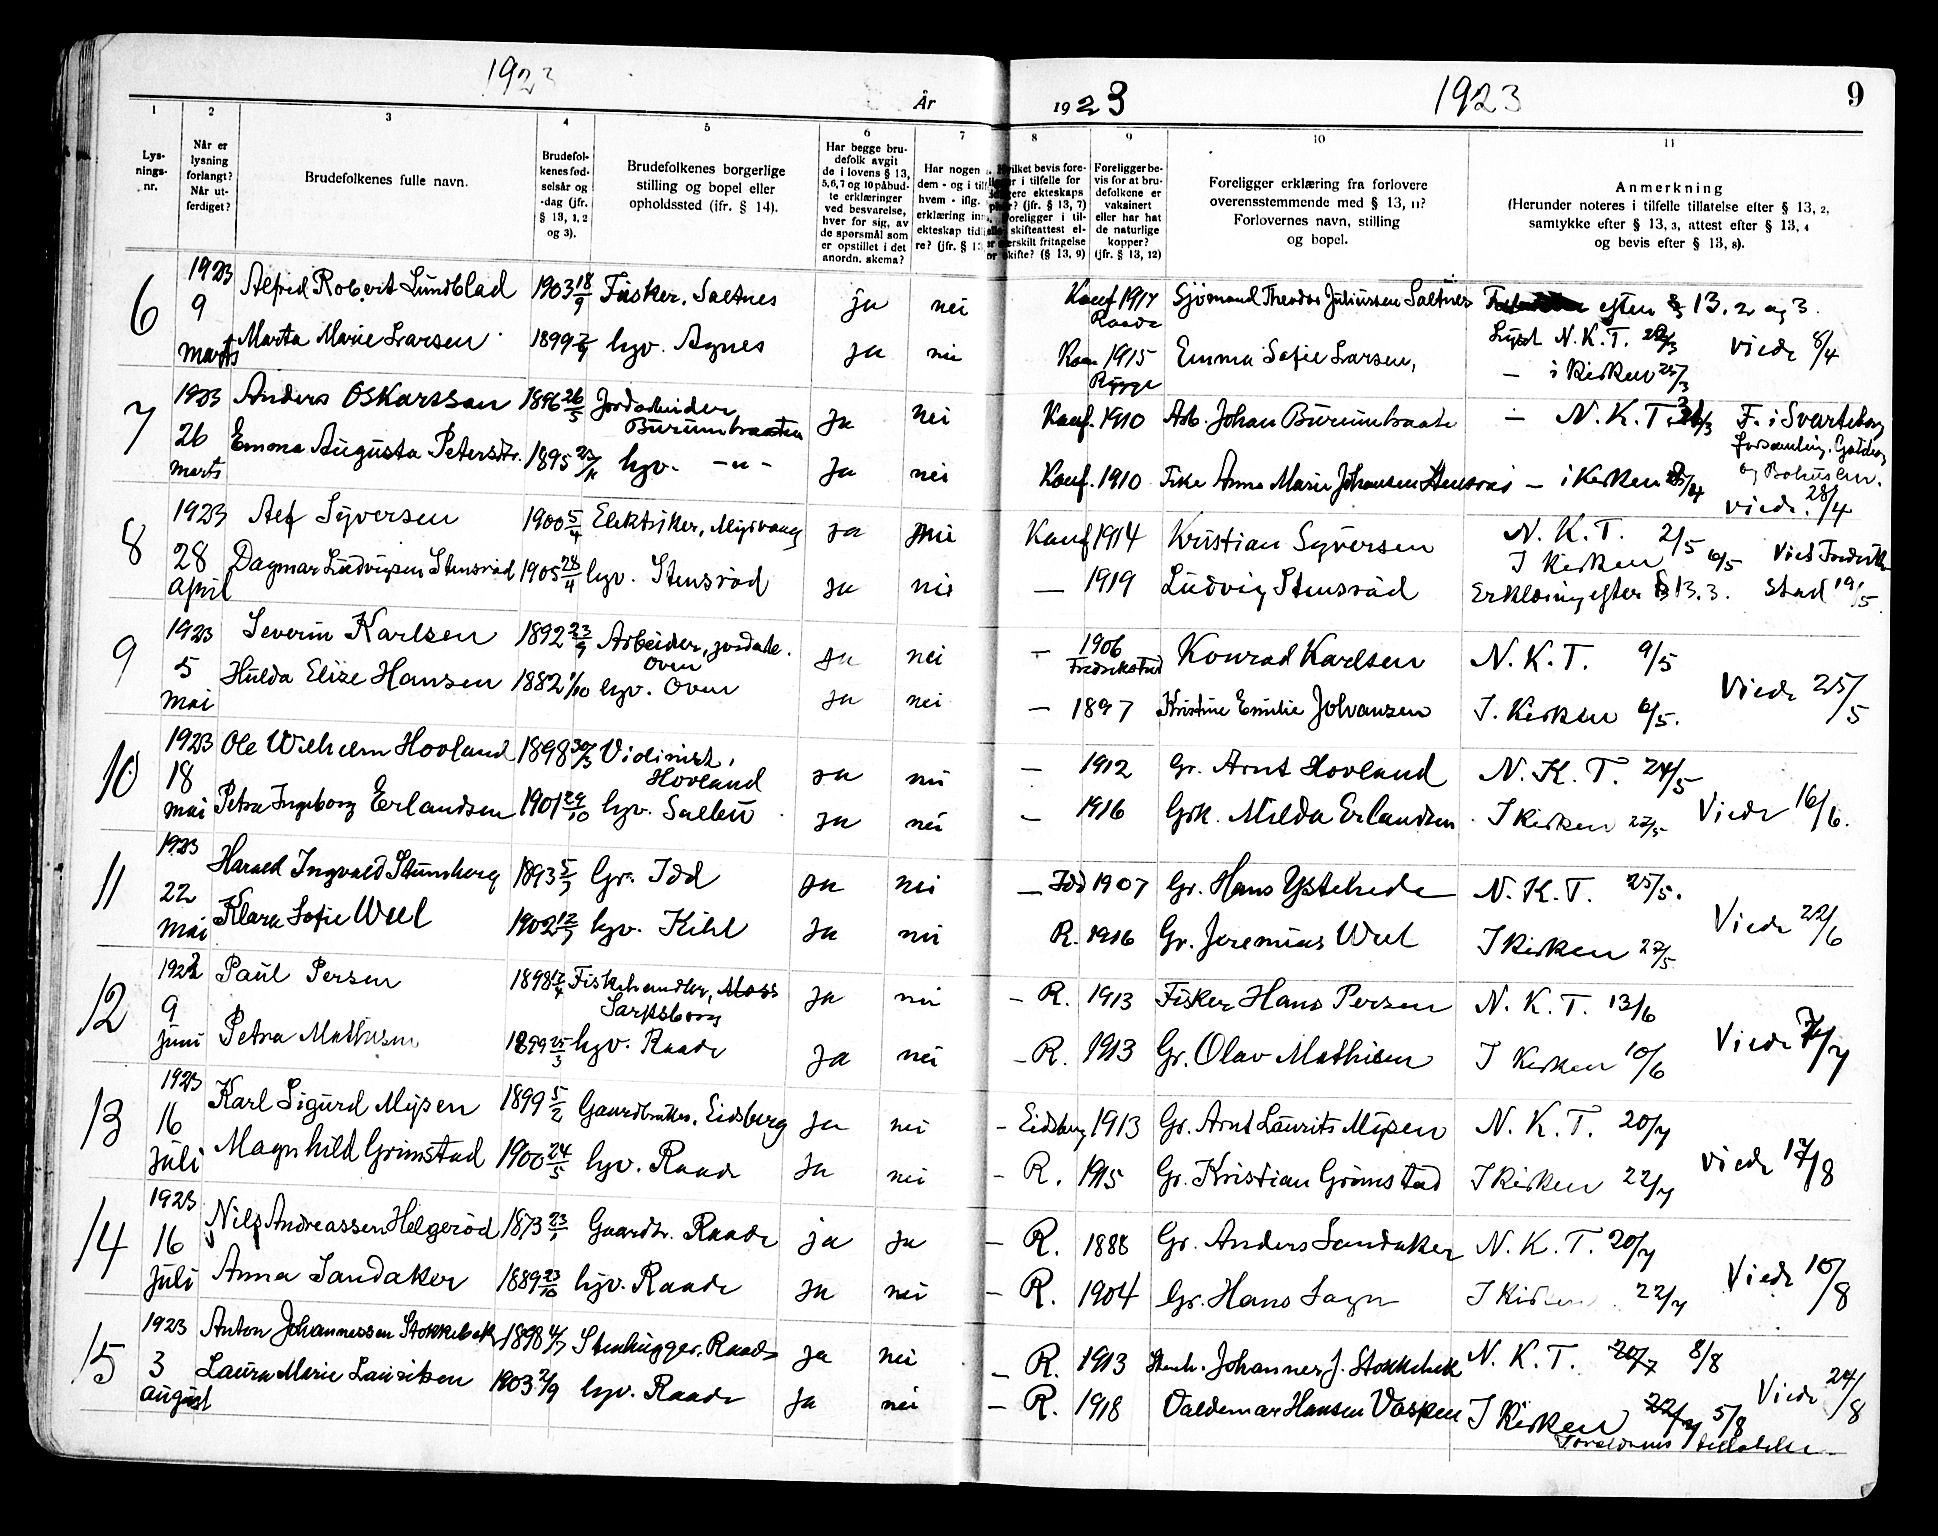 1923 År 1923 1923 9
1 2 3 4 5 6 7 8 9 10 11
Lys-
nings-
nr.
Når er
lysning
forlangt?
Når ut-
ferdiget?
Brudefolkenes fulle navn.
Brudefol-
kenes fød-
selsår og
-dag (jfr.
§ 13, 1, 2
og 3).
Brudefolkenes borgerlige
stilling og bopel eller
opholdssted (ifr. § 14).
Har begge bru-
defolk avgit
de i lovens § 13,
5, 6, 7 og 10 påbud-
te erklæringer
ved besvarelse,
hver for sig, av
de spørsmål som
er opstillet i det
anordn. skema?
Har nogen
dem - og i til
hvem - iflg.
erklæring in
ekteskap tid
re? (jfr. § 13
hvilket bevis fore-
i tilfelle for
ekteskaps
? (jfr. § 13, 7)
foreligger i til-
skifteattest el-
særskilt fritagelse
skifte? (§ 13, 9)
Foreligger be-
vis for at bru-
defolkene er
vaksinert
eller har hat
de naturlige
kopper?
(jfr. § 13, 12)
Foreligger erklæring fra forlovere
overensstemmende med § 13, 11?
Forlovernes navn, stilling
og bopel.
Anmerkning
(Herunder noteres i tilfelle tillatelse efter § 13, 2,
samtykke efter § 13, 3, attest efter § 13, 4
og bevis efter § 13, 8).
6 1923 Alfred Robert Lundblad 1903 18/9 Fisker, Saltnes ja nei Konf 1917 Sjömand Theodor Juliussen Saltnes efter § 13. 2 og 3.
Raade
9 marts Marta Marie Larsen 1899 hgv. Agnes ja nei 1915 Emma Sofie Larsen, Lyst N. K. T. Viede 8/4
Rygge - i Kirken 25/3
7 1923 Anders Oskarsson 1896 26/5 Jordarbeider Ja nei Konf. 1910 Arb. Johan Burumbraate - N. K. T. F. i Svarteborg
Burumbraaten
26 marts Emma Augusta Petersdtr. 1895 23/11 hgv. -"- Ja nei Konf. 1910 Frk. Anna Marie Johansen - i Kirken og Bohuslen.
Viede 28/4
8 1923 Alf Syversen 1900 5/4 Elektriker, Mysvang Ja nei Konf 1914 Kristian Syversen N. K. T. 2/5
28 april Dagmar Ludvigsen Stensröd 1905 28/4 hgv. Stensröd Ja nei - 1919 Ludvig Stensröd I Kirken 6/5 Viet Fredrik-
Erklæring efter § 13. 3. stad 19/5.
9 1923 Severin Karlsen 1892 23/9 Arbeider, jordarb. Ja nei - 1906 Konrad Karlsen N. K. T. 9/5
Oven Fredrikstad
5 mai Hulda Elise Hansen 1882 1/10 hgv. Oven Ja nei - 1897 Kristine Emilie Johansen I. Kirken 6/5. Viede 25/5
10 1923 Ole Wilhelm Hovland 1898 30/3 Violinist, Ja nei - 1912 Gr. Arnt Hovland N. K. T. 24/5
Hovland
18 mai Petra Ingeborg Erlandsen 1901 29/10 hgv. Ja nei - 1916 Grk. Milda Erlandsen I Kirken 27/5 Viede 16/6.
11 1923 Harald Ingvald Stumberg 1893 5/7 Gr. Idd Ja nei - Idd 1907 Gr. Hans Ystehede N. K. T. 25/5.
22 mai Klara Sofie Weel 1902 12/7 hgv. Kihl Ja nei R. 1916 Gr. Jeremias Weel I Kirken 27/5 Viede 22/6
12 1923 Paul Persen 1898 17/4 Fiskehandler, Moss Ja nei - R. 1913 Fisker Hans Persen N. K. T. 13/6
Sarpsborg
9 juni Petra Mathisen 1899 25/3 hgv. Raade Ja nei - R. 1913 Gr. Olav Mathisen I Kirken 10/6 Viede 7/7
13 1923 Karl Sigurd Mysen 1899 5/2 Gaardbruker, Eidsberg Ja nei - Eidsberg 1913 Gr. Arnt Laurits Mysen N. K. T. 20/7
16 juli Magnhild Grimstad 1900 24/5 hgv. Raade Ja nei - R. 1915 Gr. Kristian Grimstad I Kirken 22/7 Viede 17/8
14 1923 Nils Andreassen Helgeröd 1873 Gaardbr. Raade ja ja - R. 1888 Gr. Anders Sandaker N. K. T. 20/7
16 juli Anna Sandaker 1889 23/10 hgv. Raade Ja nei - R. 1904 Gr. Hans I Kirken 22/7 Viede 10/8
15 1923 Anton Johannessen Stokkebek 1898 4/7 Stenhugger. Raade Ja nei - R. 1913 Stenh. Johannes J. Stokkebek N. K. T. 20/7 8/8
3 august Laura Marie Lauritsen 1903 2/9 hgv. Raade Ja nei - R. 1918 Valdemar Hansen I Kirken 22/7 5/8 Viede 24/8
Forældrenes tilladelse